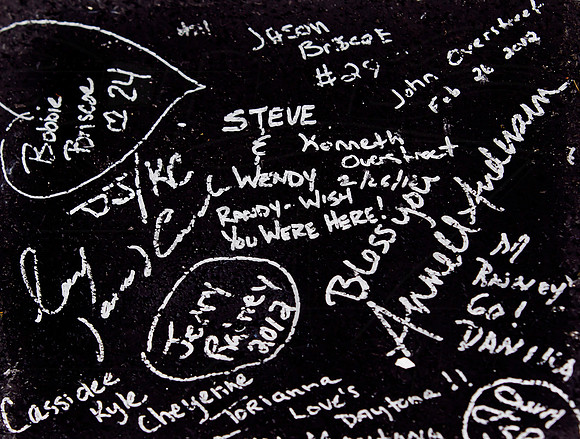 Jason
Briscoe
#29
John Overstreet
Feb 26 2012
Bobbie
Briscoe
24
STEVE
&
WENDY
Kenneth
Overstreet
2/26/12
RANDY - WISH
YOU WERE HERE!
DJ/KC
Bless you
Jerry
Rainey
2012
Rainey
Go!
DANICA
Cassidee
Kyle
Cheyenne
Torianna
Love's
Daytona!!